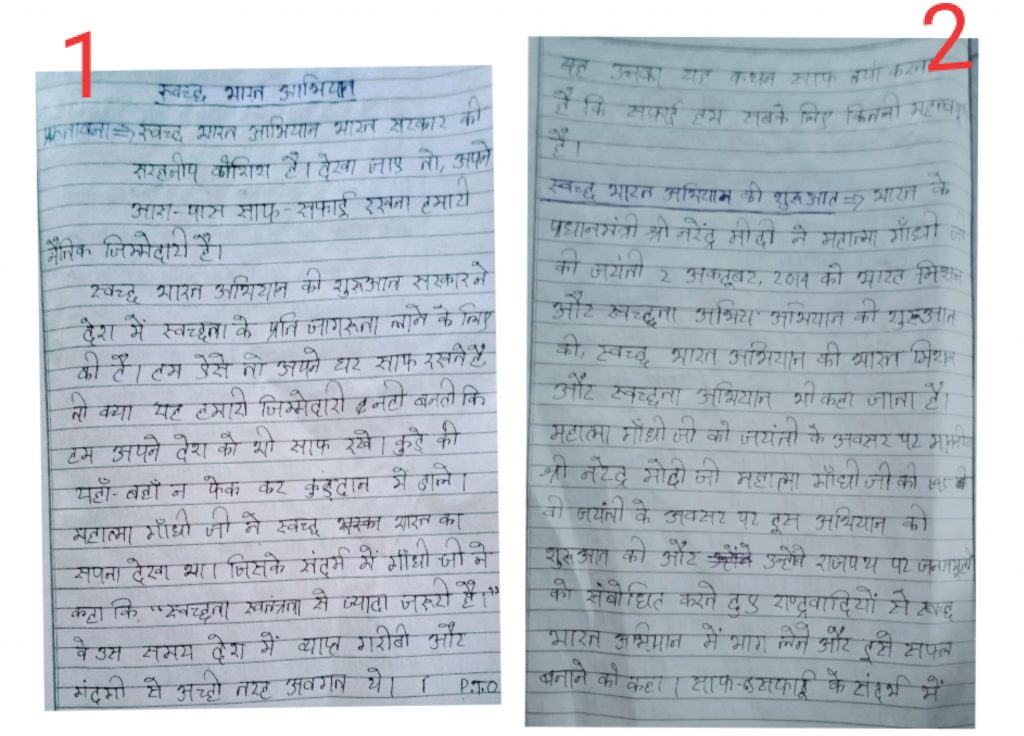 1
स्वच्छ भारत आभियान
प्रस्तावना ⇒ स्वच्छ भारत आभियान भारत सरकार की
सरहनीय कोशिश है। देखा जाए तो, अपने
आस-पास साफ-सफाई रखना हमारी
नैतिक जिम्मेदारी है।
स्वच्छ भारत अभियान की शुरूआत सरकार ने
देश में स्वच्छता के प्रति जागरूता लाने के लिए
की है। हम जैसे तो अपने घर साफ रखते है,
तो क्या यह हमारी जिम्मेदारी नही बनती कि
हम अपने देश को भी साफ रखे। कुडे को
यहाँ-वहाँ न फेक कर कुड़दान में डाले।
महात्मा गाँधी जी ने स्वच्छ भारत का
सपना देखा था। जिसके संदर्भ में गाँधी जी ने
कहा कि, "स्वच्छता स्वतंत्रता से ज्यादा जरूरी है।"
वे उस समय देश में व्याप्त गरीबी और
गंदगी से अच्छी तरह अवगत थे। P.T.O
2
यह उनका यह कथन साफ बयां करता
है कि सफाई हम सबके लिए कितनी महत्वपूर्ण
है।
स्वच्छ भारत अभियान की शुरूआत ⇒ भारत के
प्रधानमंत्री श्री नरेंद्र मोदी ने महात्मा गाँधी जी
की जयंती 2 अकटूबर, 2014 को भारत मिशन
और स्वच्छता अभिय अभियान की शुरूआत
की, स्वच्छ भारत अभियान को भारत मिशन
और स्वच्छता अभियान भी कहा जाता है।
महात्मा गाँधी जी की जयंती के अवसर पर माननीय
श्री नरेंद्र मोदी जी महात्मा गाँधी जी की 145 वी
वी जयंती के अवसर पर इस अभियान की
शुरूआत की और उन्होने राजपथ पर जनसमूहों
को संबोधित करते हुए राष्ट्रवादियों से स्वच्छ
भारत अभियान में भाग लेने और इसे सफल
बनाने को कहा। साफ-सफाई के संदर्भ में